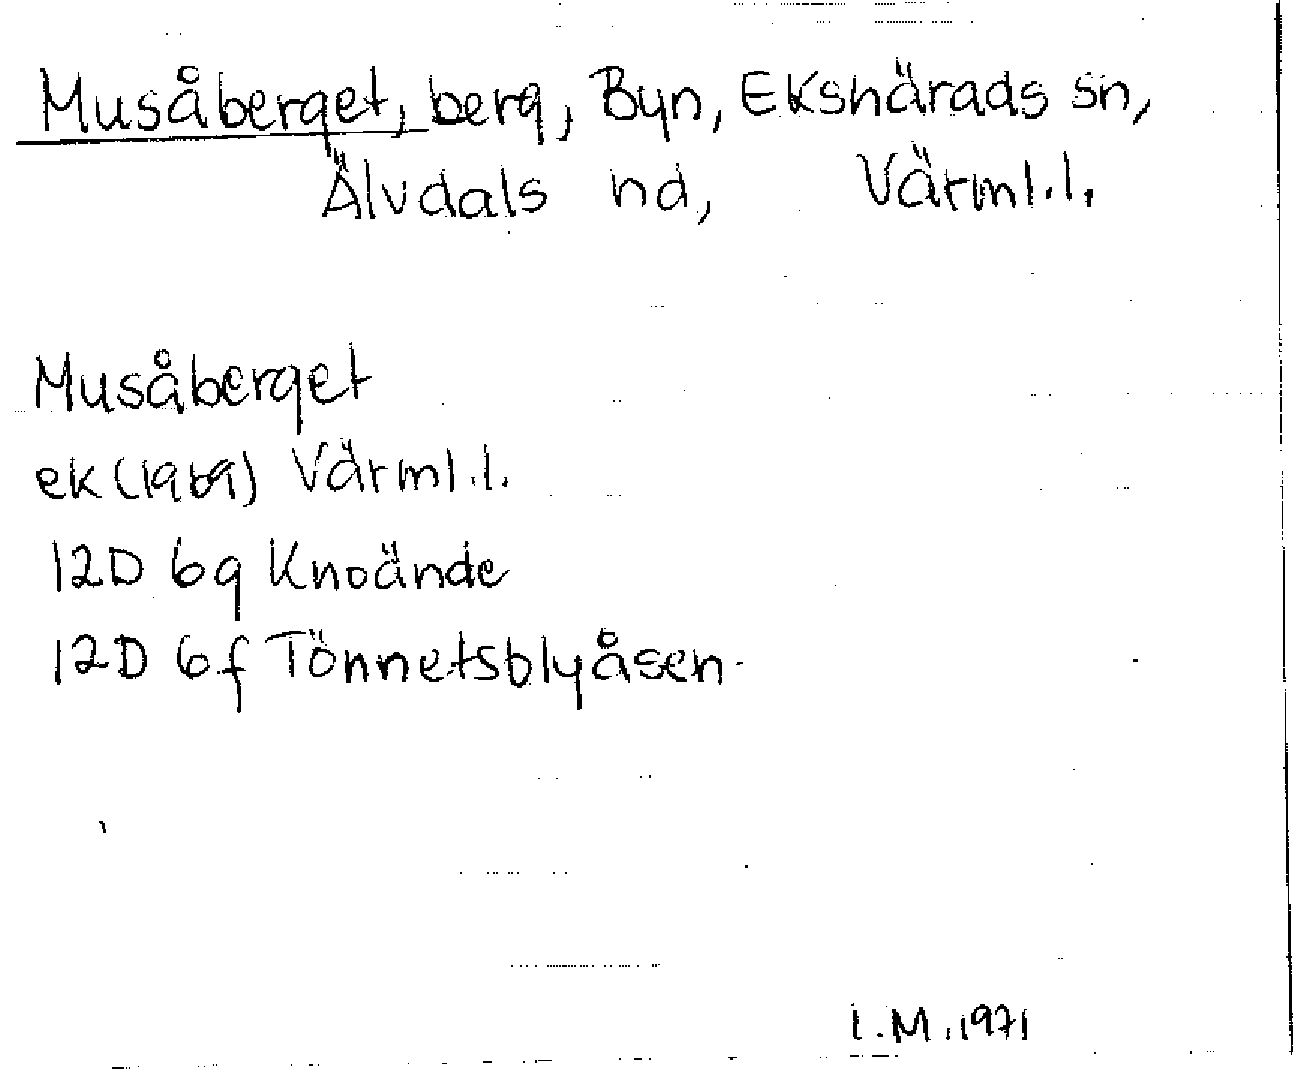 Musåberget, berg, Byn, Ekshärads sn,
Älvdals hd, Värml.l.
Musåberget
ek (1969) Värml.l.
12D 6g Knoände
12D 6f Tönnetsblyåsen
I.M. 1971